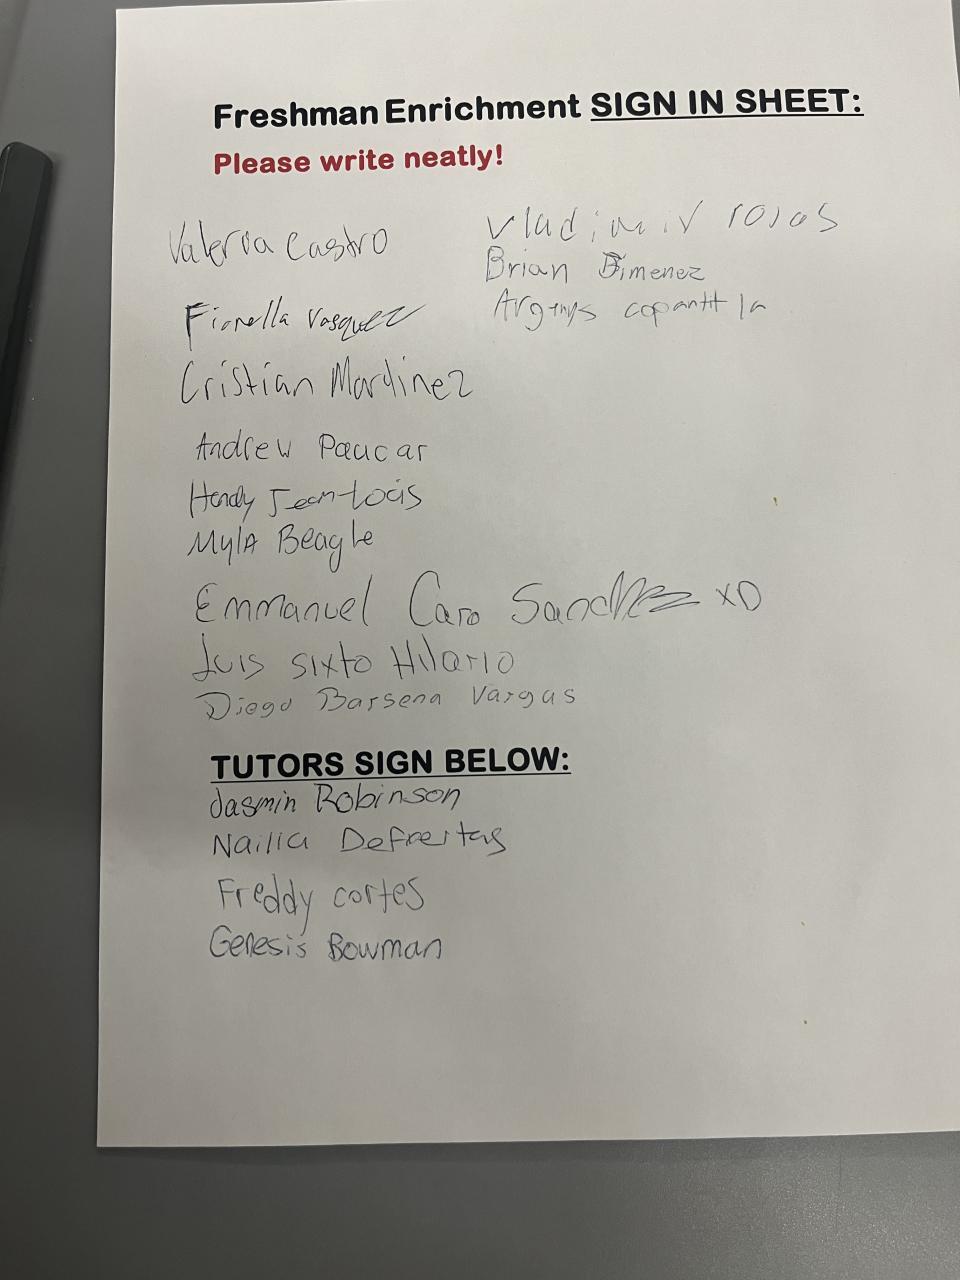 Freshman Enrichment SIGN IN SHEET:
Please write neatly!
Valeria Castro
Fiorella Vasquez
Cristian Mardinez
Andrew Paucar
Hendy Jean-Locis
Myla Beagle
Emmanuel Caro Sanchez XD
Luis sixto Hilario
Diego Barsena Vargas
Vladimir rojas
Brian Jimenez
TUTORS SIGN BELOW:
Jasmin Robinson
Nailia Defreitas
Freddy cortes
Genesis Bowman